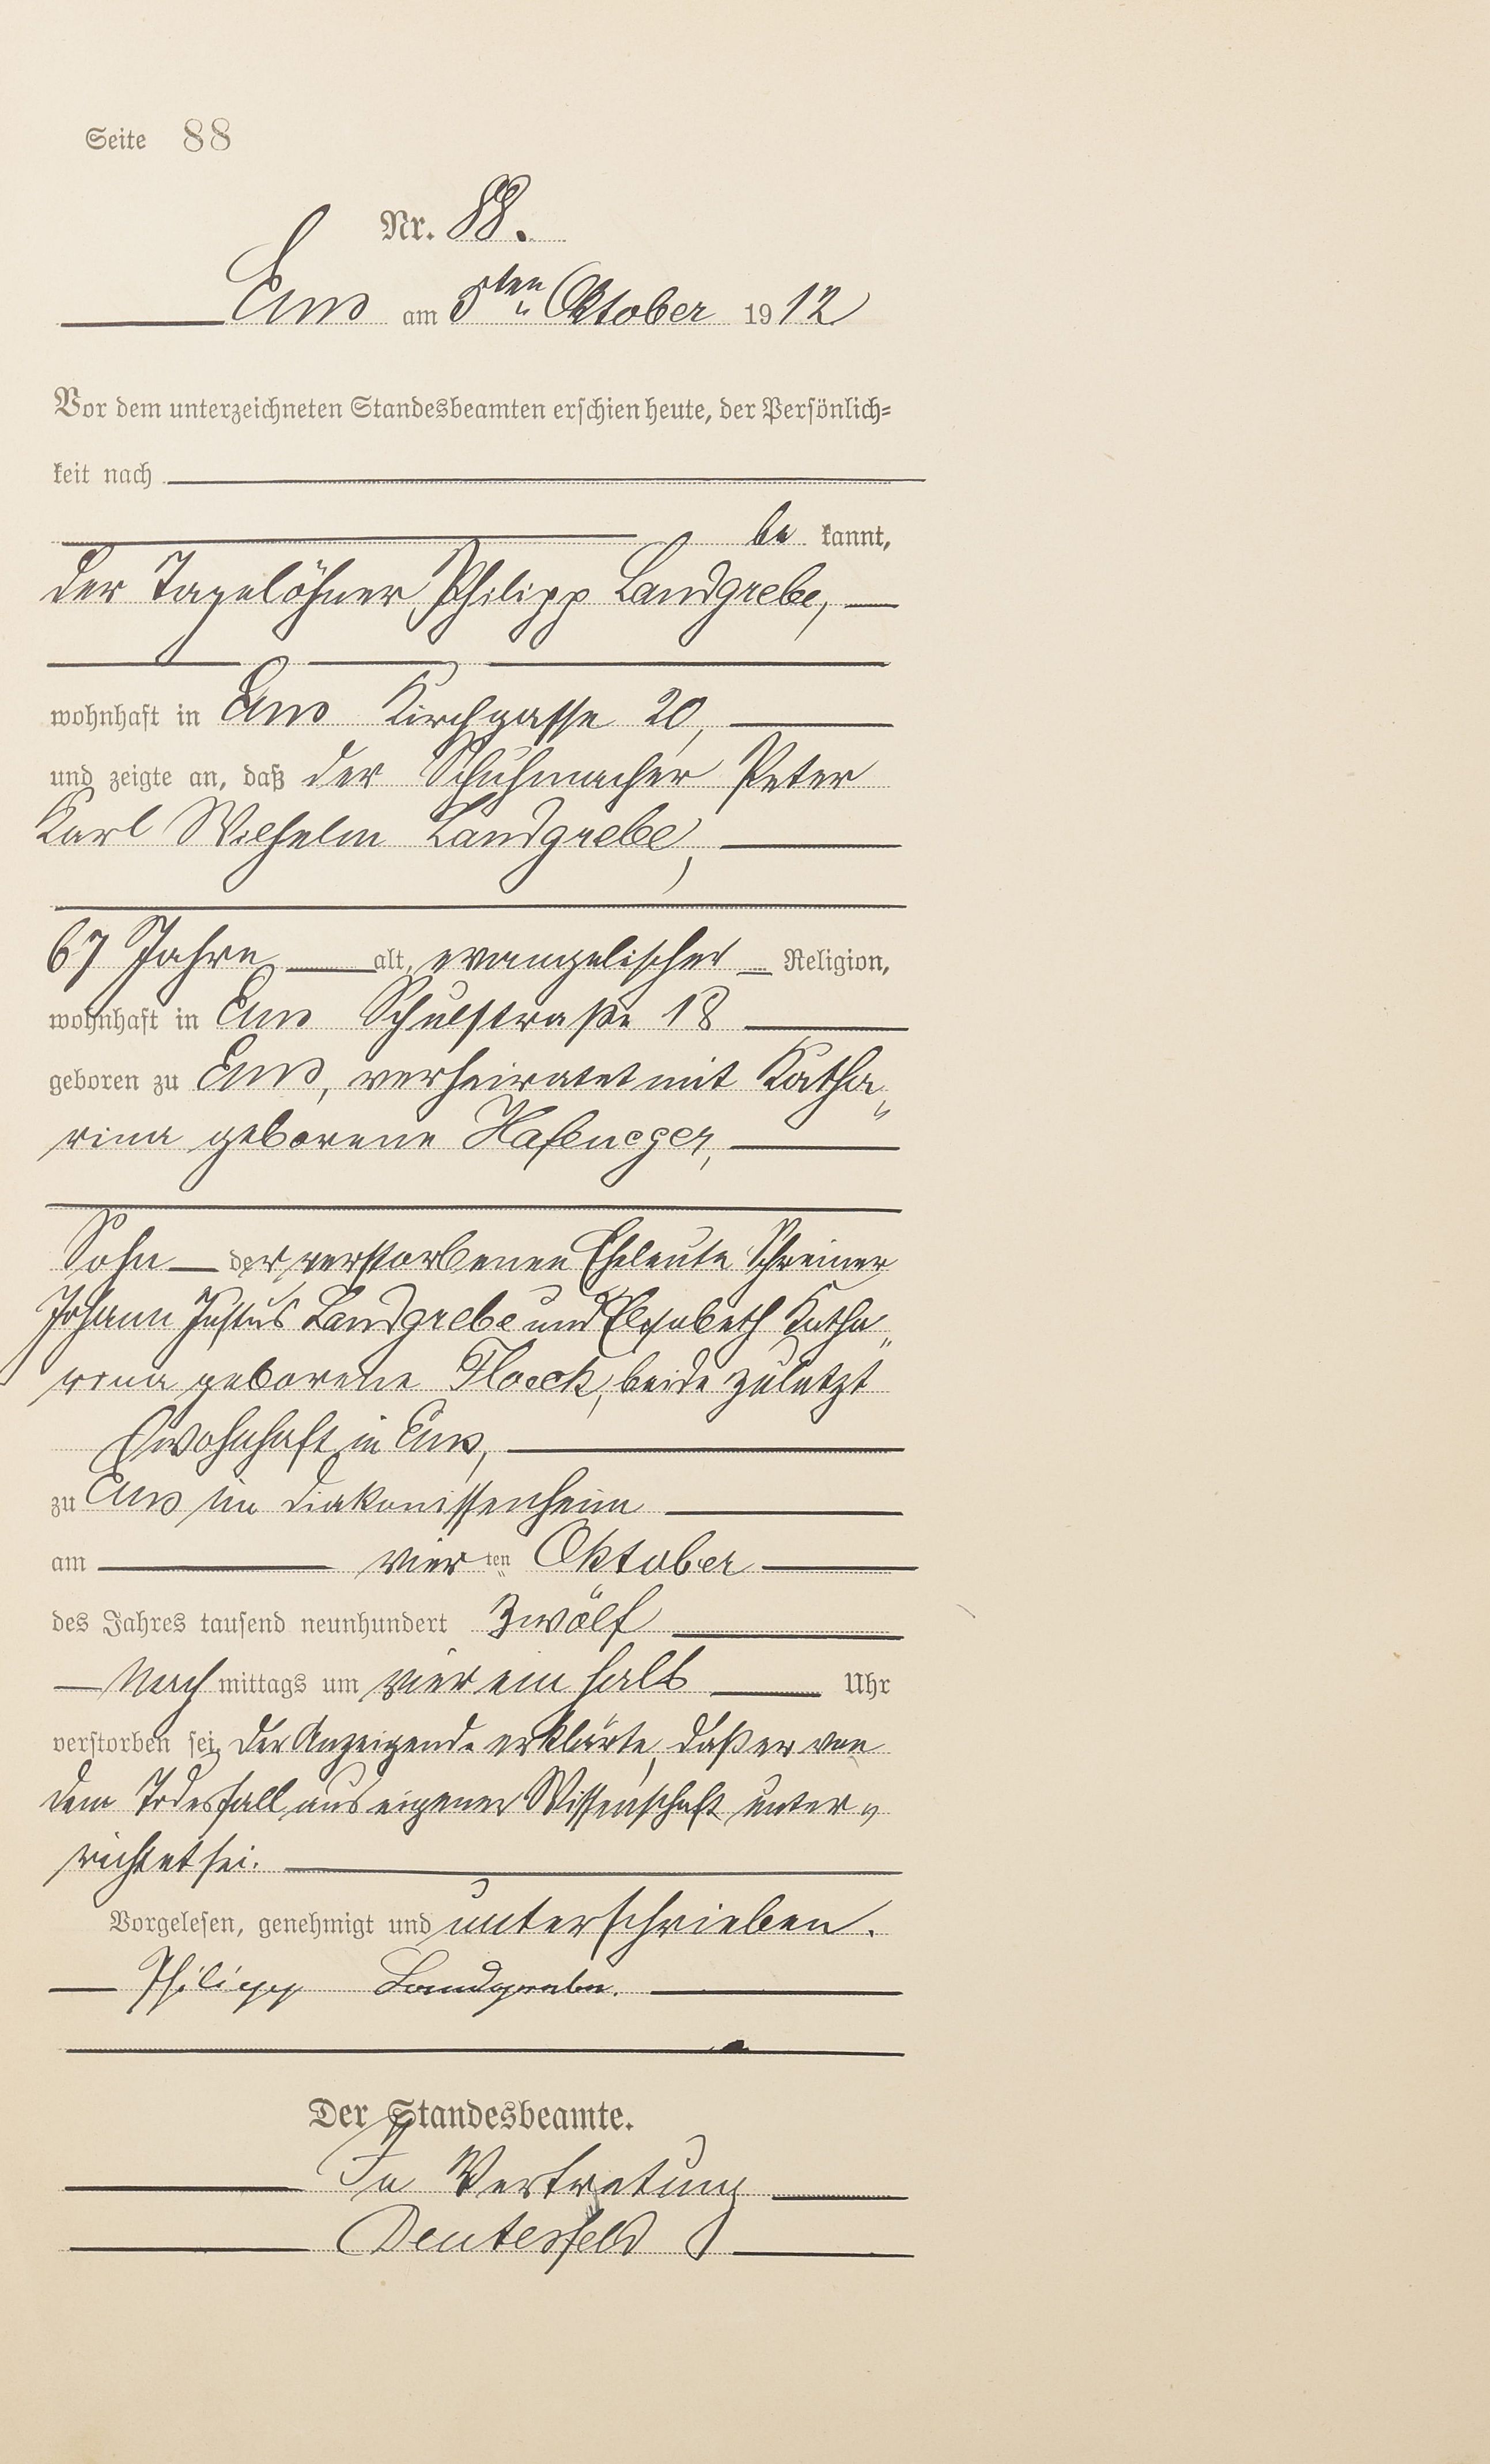 Seite 88
Nr. 88.
Ems am 5ten Oktober 1912
Vor dem unterzeichneten Standesbeamten erschien heute, der Persönlich-
keit nach
be kannt,
der Tagelöhner Philipp Landgrebe,
wohnhaft in Ems Kirchgasse 20,
und zeigte an, daß der Schuhmacher Peter
Karl Wilhelm Landgrebe,
67 Jahre alt, evangelischer Religion,
wohnhaft in Ems Schulstraße 18
geboren zu Ems, verheiratet mit Katha-
rina geborene Hafeneger,
Sohn der verstorbenen Eheleute Schreiner
Johann Justus Landgrebe und Elisabeth Katha-
rina geborene Floeck, beide zuletzt
wohnhaft in Ems,
zu Ems im Diakonissenheim
am vierten Oktober
des Jahres tausend neunhundert zwölf
Nachmittags um vier ein halb Uhr
verstorben sei. Der Anzeigende erklärte, daß er von
dem Todesfall aus eigener Wissenschaft unter-
richtet sei.
Vorgelesen, genehmigt und unterschrieben.
Philipp Landgrebe.
Der Standesbeamte.
In Vertretung
Deutesfeld